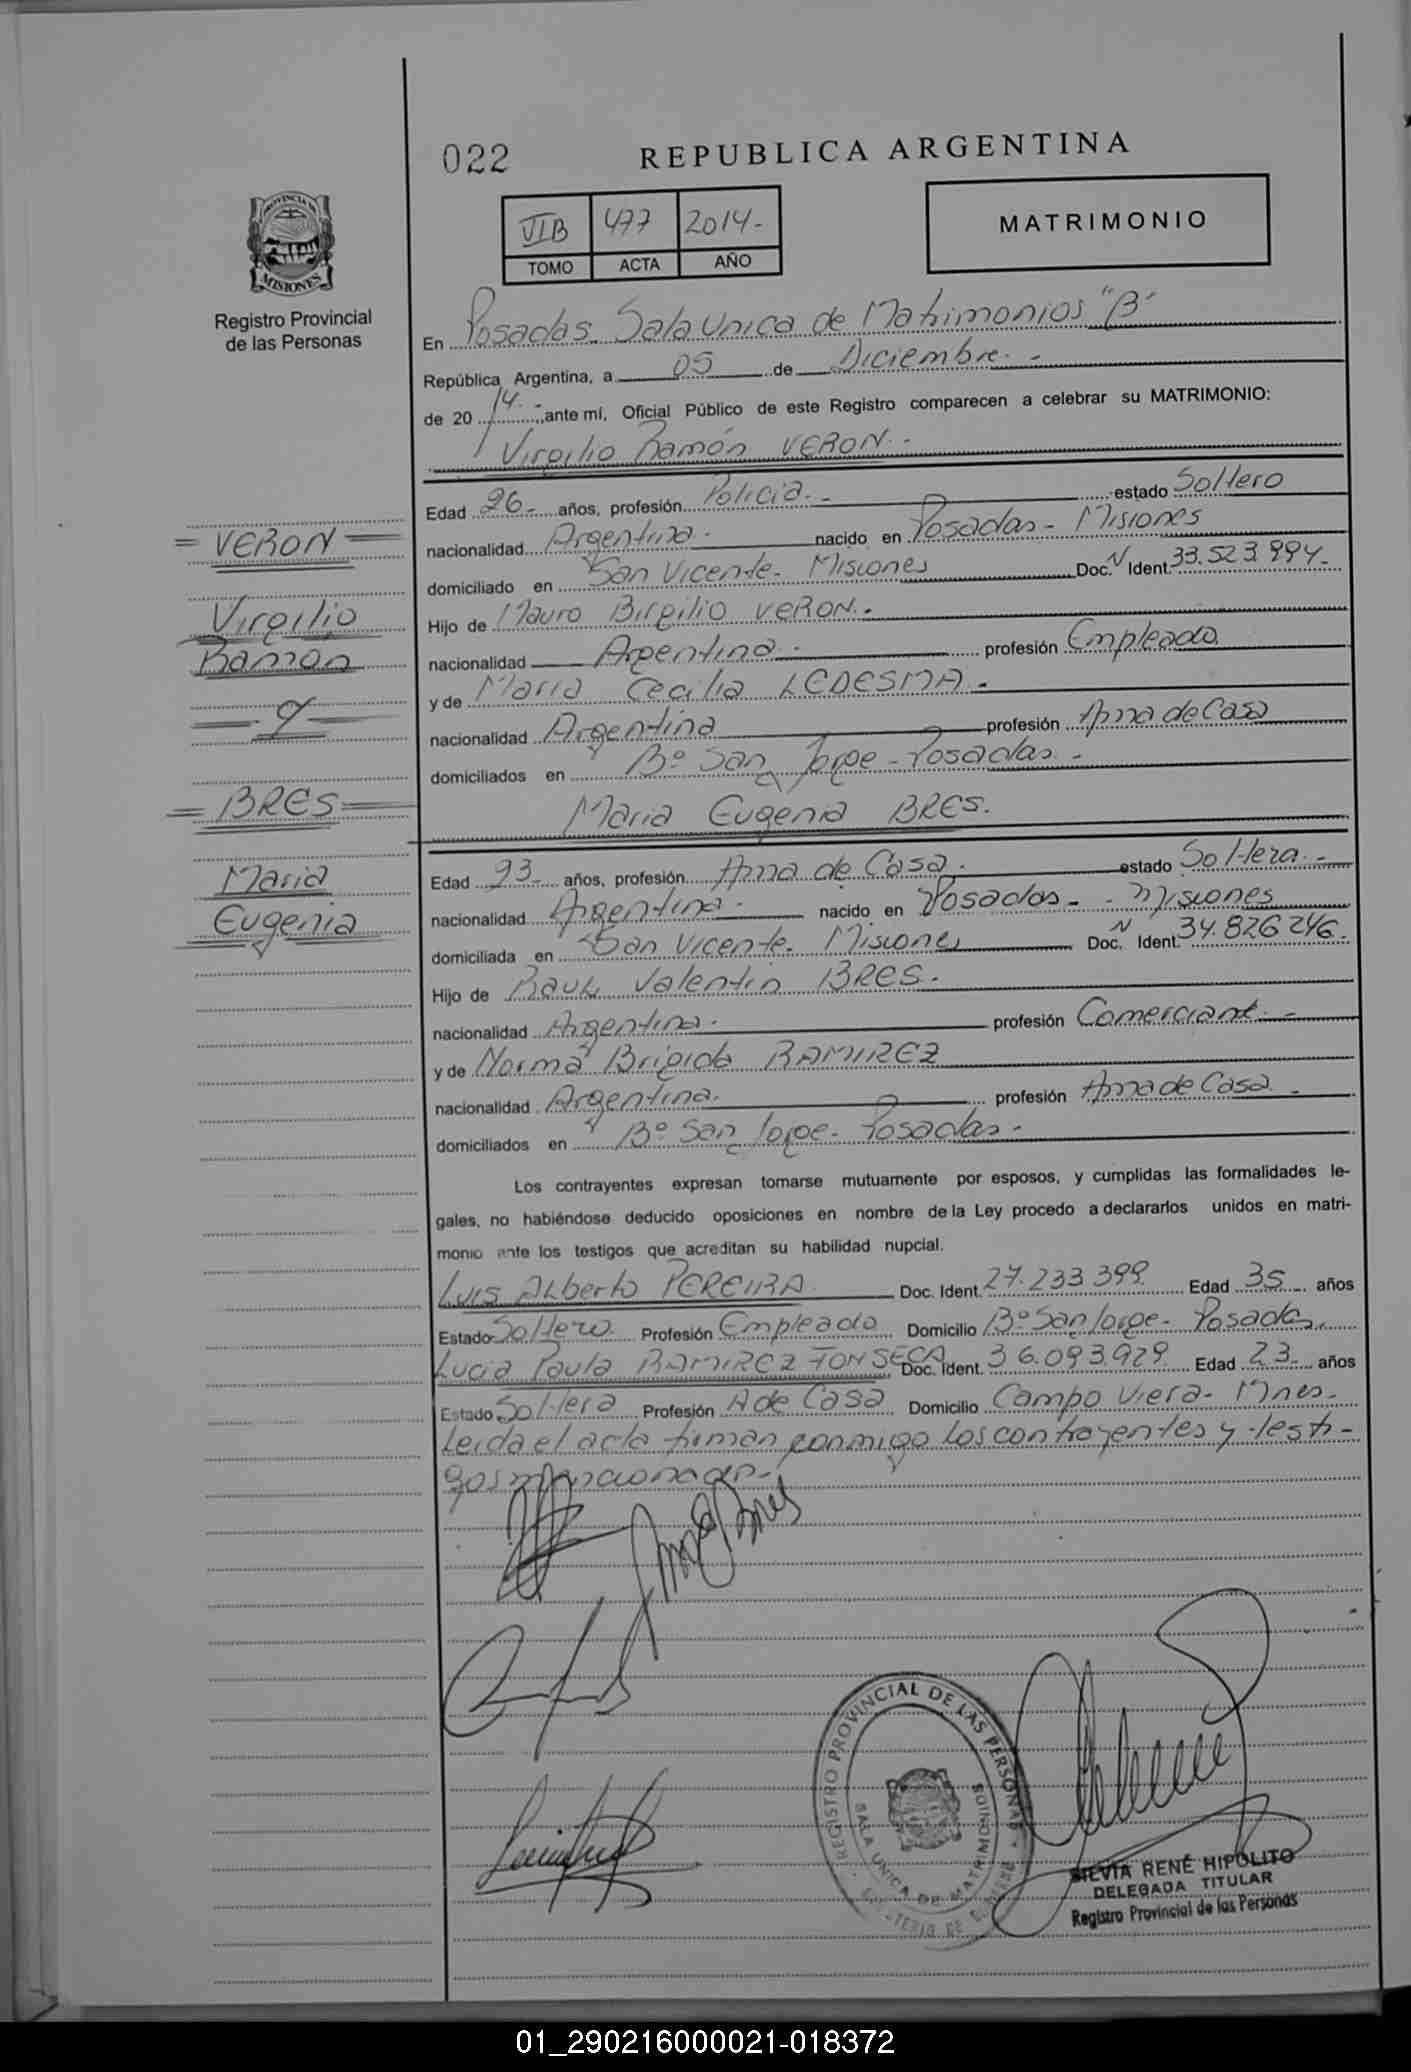 022
REPUBLICA ARGENTINA
VIB 477 2014-
TOMO ACTA AÑO
MATRIMONIO
PROVINCIA DE
MISIONES
Registro Provincial
de las Personas
En Posadas. Sala Unica de Matrimonios "B"
República Argentina, a 05 de Diciembre. -
de 20 14. - ante mí, Oficial Público de este Registro comparecen a celebrar su MATRIMONIO:
Virgilio Ramón VERON. -
Edad 26- años, profesión Policia. - estado Soltero
= VERON =
nacionalidad Argentina. nacido en Posadas - Misiones
domiciliado en San Vicente - Misiones Doc. N Ident. 33.523.994-
Virgilio
Hijo de Mauro Birgilio VERON. -
Ramon
nacionalidad Argentina. profesión Empleado
y de Maria Cecilia LEDESMA. -
- y -
nacionalidad Argentina profesión Ama de Casa
domiciliados en Bº San Jorge - Posadas. -
= BRES =
Maria Eugenia BRES.
Maria
Edad 23- años, profesión Ama de Casa. estado Soltera. -
Eugenia
nacionalidad Argentina. nacido en Posadas - - Misiones
domiciliada en San Vicente - Misiones Doc. N Ident. 34.826246.
Hijo de Raul Valentin BRES.
nacionalidad Argentina. profesión Comerciante. -
y de Norma Brigida RAMIREZ
nacionalidad Argentina. profesión Ama de Casa. -
domiciliados en Bº San Jorge - Posadas. -
Los contrayentes expresan tomarse mutuamente por esposos, y cumplidas las formalidades le-
gales, no habiéndose deducido oposiciones en nombre de la Ley procedo a declararlos unidos en matri-
monio ante los testigos que acreditan su habilidad nupcial.
Luis Alberto PEREIRA Doc. Ident. 27.233.399. Edad 35 años
Estado Soltero Profesión Empleado Domicilio Bº San Jorge - Posadas.
Lucia Paula RAMIREZ FONSECA Doc. Ident. 36.093.929 Edad 23 años
Estado Soltera Profesión A de Casa Domicilio Campo Viera - Mnes.
Leida el acta firman conmigo los contrayentes y testi-
gos
REGISTRO PROVINCIAL DE LAS PERSONAS
SALA UNICA DE MATRIMONIOS
SILVIA RENÉ HIPOLITO
DELEGADA TITULAR
Registro Provincial de las Personas
01_290216000021-018372